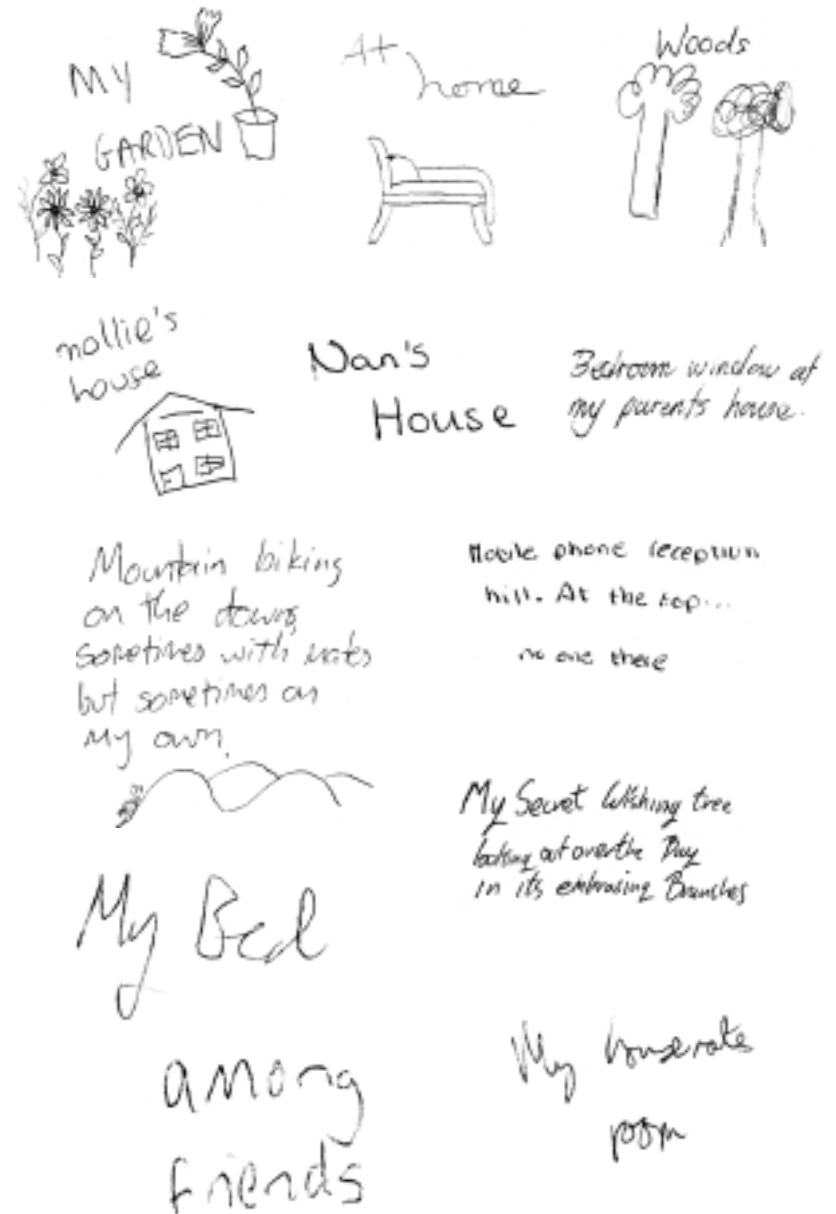 MY
GARDEN
At
home
Woods
mollie's
house
Nan's
House
Bedroom window at
my parents house.
Mountain biking
on the downs,
sometimes with mates
but sometimes on
My own.
Mobile phone reception
hill. At the top...
no one there
My Secret Wishing tree
looking out over the Bay
in its embrasing Branches
My Bed
among
friends
My housemates
room